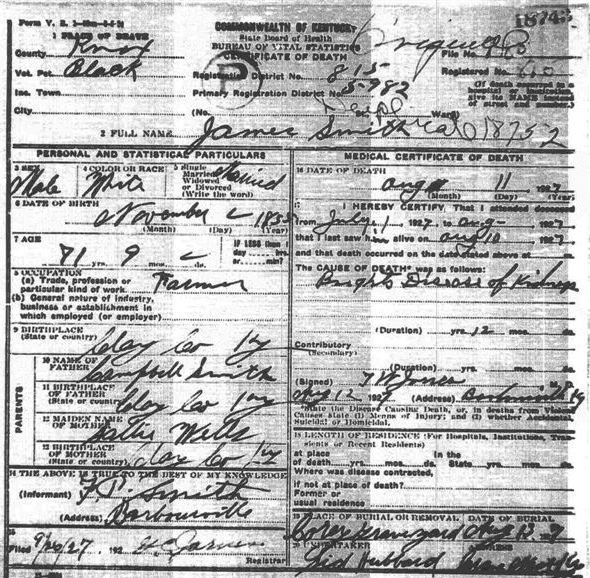 Form V. S.
18743
1 PLACE OF DEATH
COMMONWEALTH OF KENTUCKY
State Board of Health
BUREAU OF VITAL STATISTICS
CERTIFICATE OF DEATH
County Knox
File No.
Vot. Pct. Black
Registration District No. 815
Registered No.
Inc. Town
Primary Registration District No. 5982
(If death occurred in a hospital or institution, give its NAME instead of street and number.)
City
(No. St. Ward)
2 FULL NAME James Smith
18752
PERSONAL AND STATISTICAL PARTICULARS
3 SEX Male
4 COLOR OR RACE White
5 Single Married Widowed or Divorced (Write the word) Married
6 DATE OF BIRTH November
(Month) (Day) (Year)
7 AGE 9 mos. ds.
IF LESS than 1 day hrs. or min.
8 OCCUPATION
(a) Trade, profession or particular kind of work. Farmer
(b) General nature of industry, business or establishment in which employed (or employer)
9 BIRTHPLACE (State or country) Clay Co Ky
PARENTS
10 NAME OF FATHER Campbell Smith
11 BIRTHPLACE OF FATHER (State or country) Clay Co Ky
12 MAIDEN NAME OF MOTHER
13 BIRTHPLACE OF MOTHER (State or country) Clay Co Ky
14 THE ABOVE IS TRUE TO THE BEST OF MY KNOWLEDGE
(Informant) Smith
(Address) Barbourville
15
Filed 27, 192
Registrar
MEDICAL CERTIFICATE OF DEATH
16 DATE OF DEATH Aug 11 1927
(Month) (Day) (Year)
17 I HEREBY CERTIFY, That I attended deceased
from July 1 1927, to Aug 1927
that I last saw h alive on Aug 10 1927
and that death occurred on the date stated above at m.
The CAUSE OF DEATH* was as follows:
Brights Disease of Kidneys
(Duration) yrs. 12 mos. ds.
Contributory
(Secondary)
(Duration) yrs. mos. ds.
(Signed) Jones M. D.
Aug 12 192 (Address) Barbourville Ky
*State the Disease Causing Death, or, in deaths from Violent Causes State (1) Means of Injury; and (2) whether Accidental, Suicidal or Homicidal.
18 LENGTH OF RESIDENCE (For Hospitals, Institutions, Transients or Recent Residents)
at place of death yrs. mos. ds. In the State yrs. mos. ds.
Where was disease contracted,
if not at place of death?
Former or
usual residence
19 PLACE OF BURIAL OR REMOVAL DATE OF BURIAL
Graveyard Aug 13
20 UNDERTAKER
Hubbard